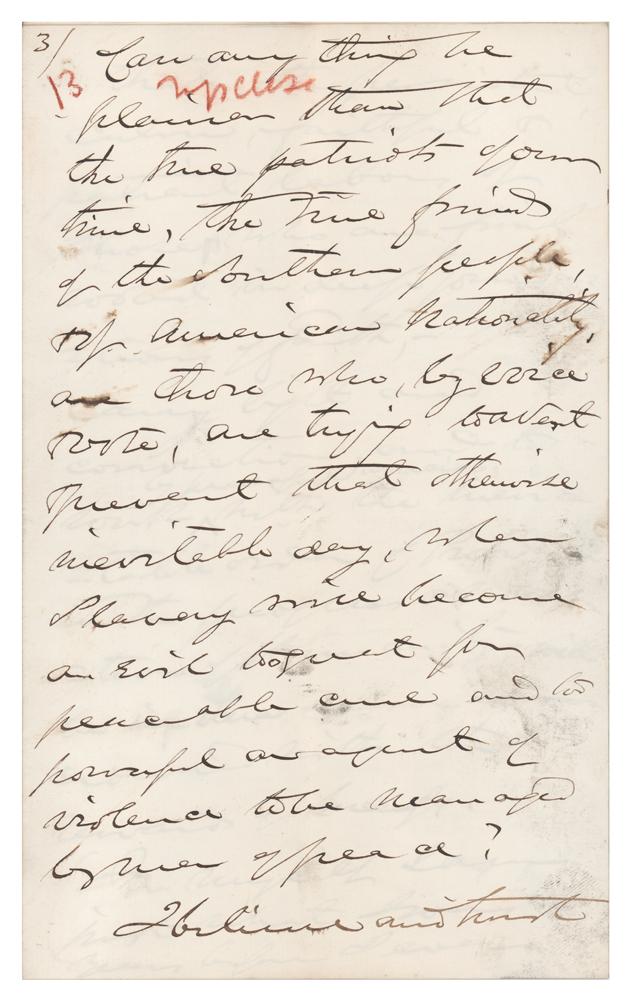 3/ Can any thing be
13
plainer than that
the true patriots of our
time, the true friends
of the Southern people,
& of American Nationality,
are those who, by voice
& vote, are trying to avert
& prevent that otherwise
inevitable day, when
Slavery will become
an Evil too great for
peaceable cure and too
powerful an agent of
violence to be managed
by men of peace?
I believe and trust